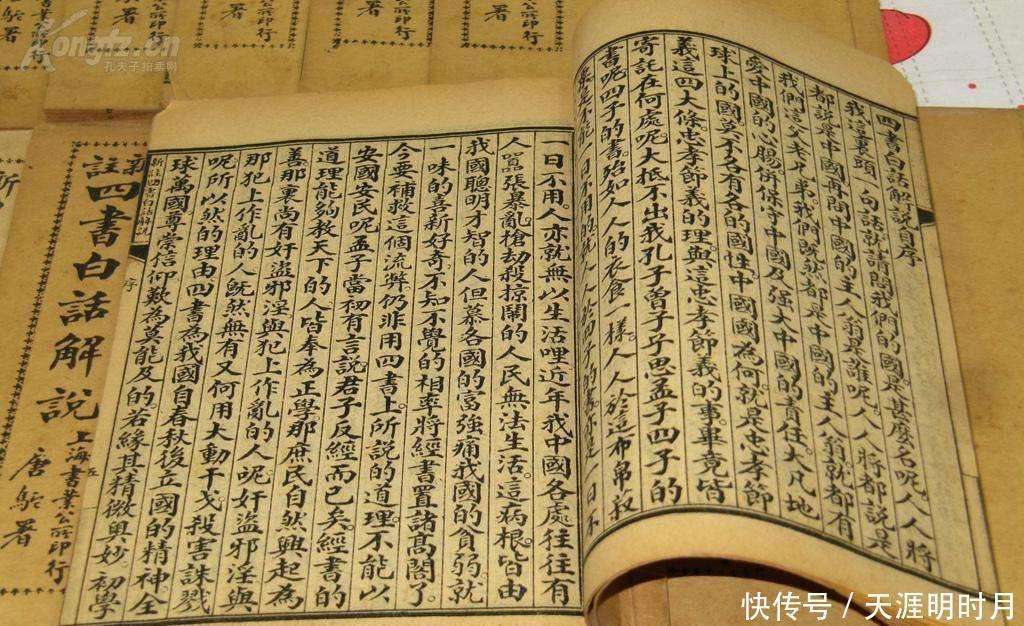 Kongfz.cn
孔夫子拍卖网
公所印行
署
四書白話解說自序
我這裏頭一句話就請問我們的國是甚麼名呢人人將
都說是中國再問中國的主人翁是誰呢人人將都說是
我們言父老兄弟我們既然都是中國的主人翁就都有
愛中國的心腸併保守中國及強大中國的責任大凡地
球上的國莫不各有各的國性中國國為何就是忠孝節
義這四大條忠孝節義的理與這忠孝節義的事畢竟皆
寄託在何處呢大抵不出我孔子曾子子思孟子四子的
書呢四子的書殆如人人的衣食一樣人人於這布帛菽
一日不用人亦就無以生活哩近年我中國各處往往有
人囂張暴亂槍劫殺掠鬧的人民無法生活這病根皆由
我國聰明才智的人但慕各國的富強痛我國的貧弱就
一味的喜新好奇不知不覺的相率將經書置諸高閣了
今要補救這個流弊仍非用四書上所說的道理不能以
安國安民呢孟子當初有言說君子反經而已矣經書的
道理能夠教天下的人皆奉為正學那庶民自然興起為
善那裏尚有奸盜邪淫與犯上作亂的人呢奸盜邪淫與
那犯上作亂的人既然無有又何用大動干戈殺害誅戮
呢所以然的理由四書為我國自春秋後立國的精神全
球萬國尊崇信仰歎為莫能及的若緣其精微奧妙初學
新註四書白話解說 序
新註四書白話解說
上海書業公所印行
唐駝署
快传号 / 天涯明时月